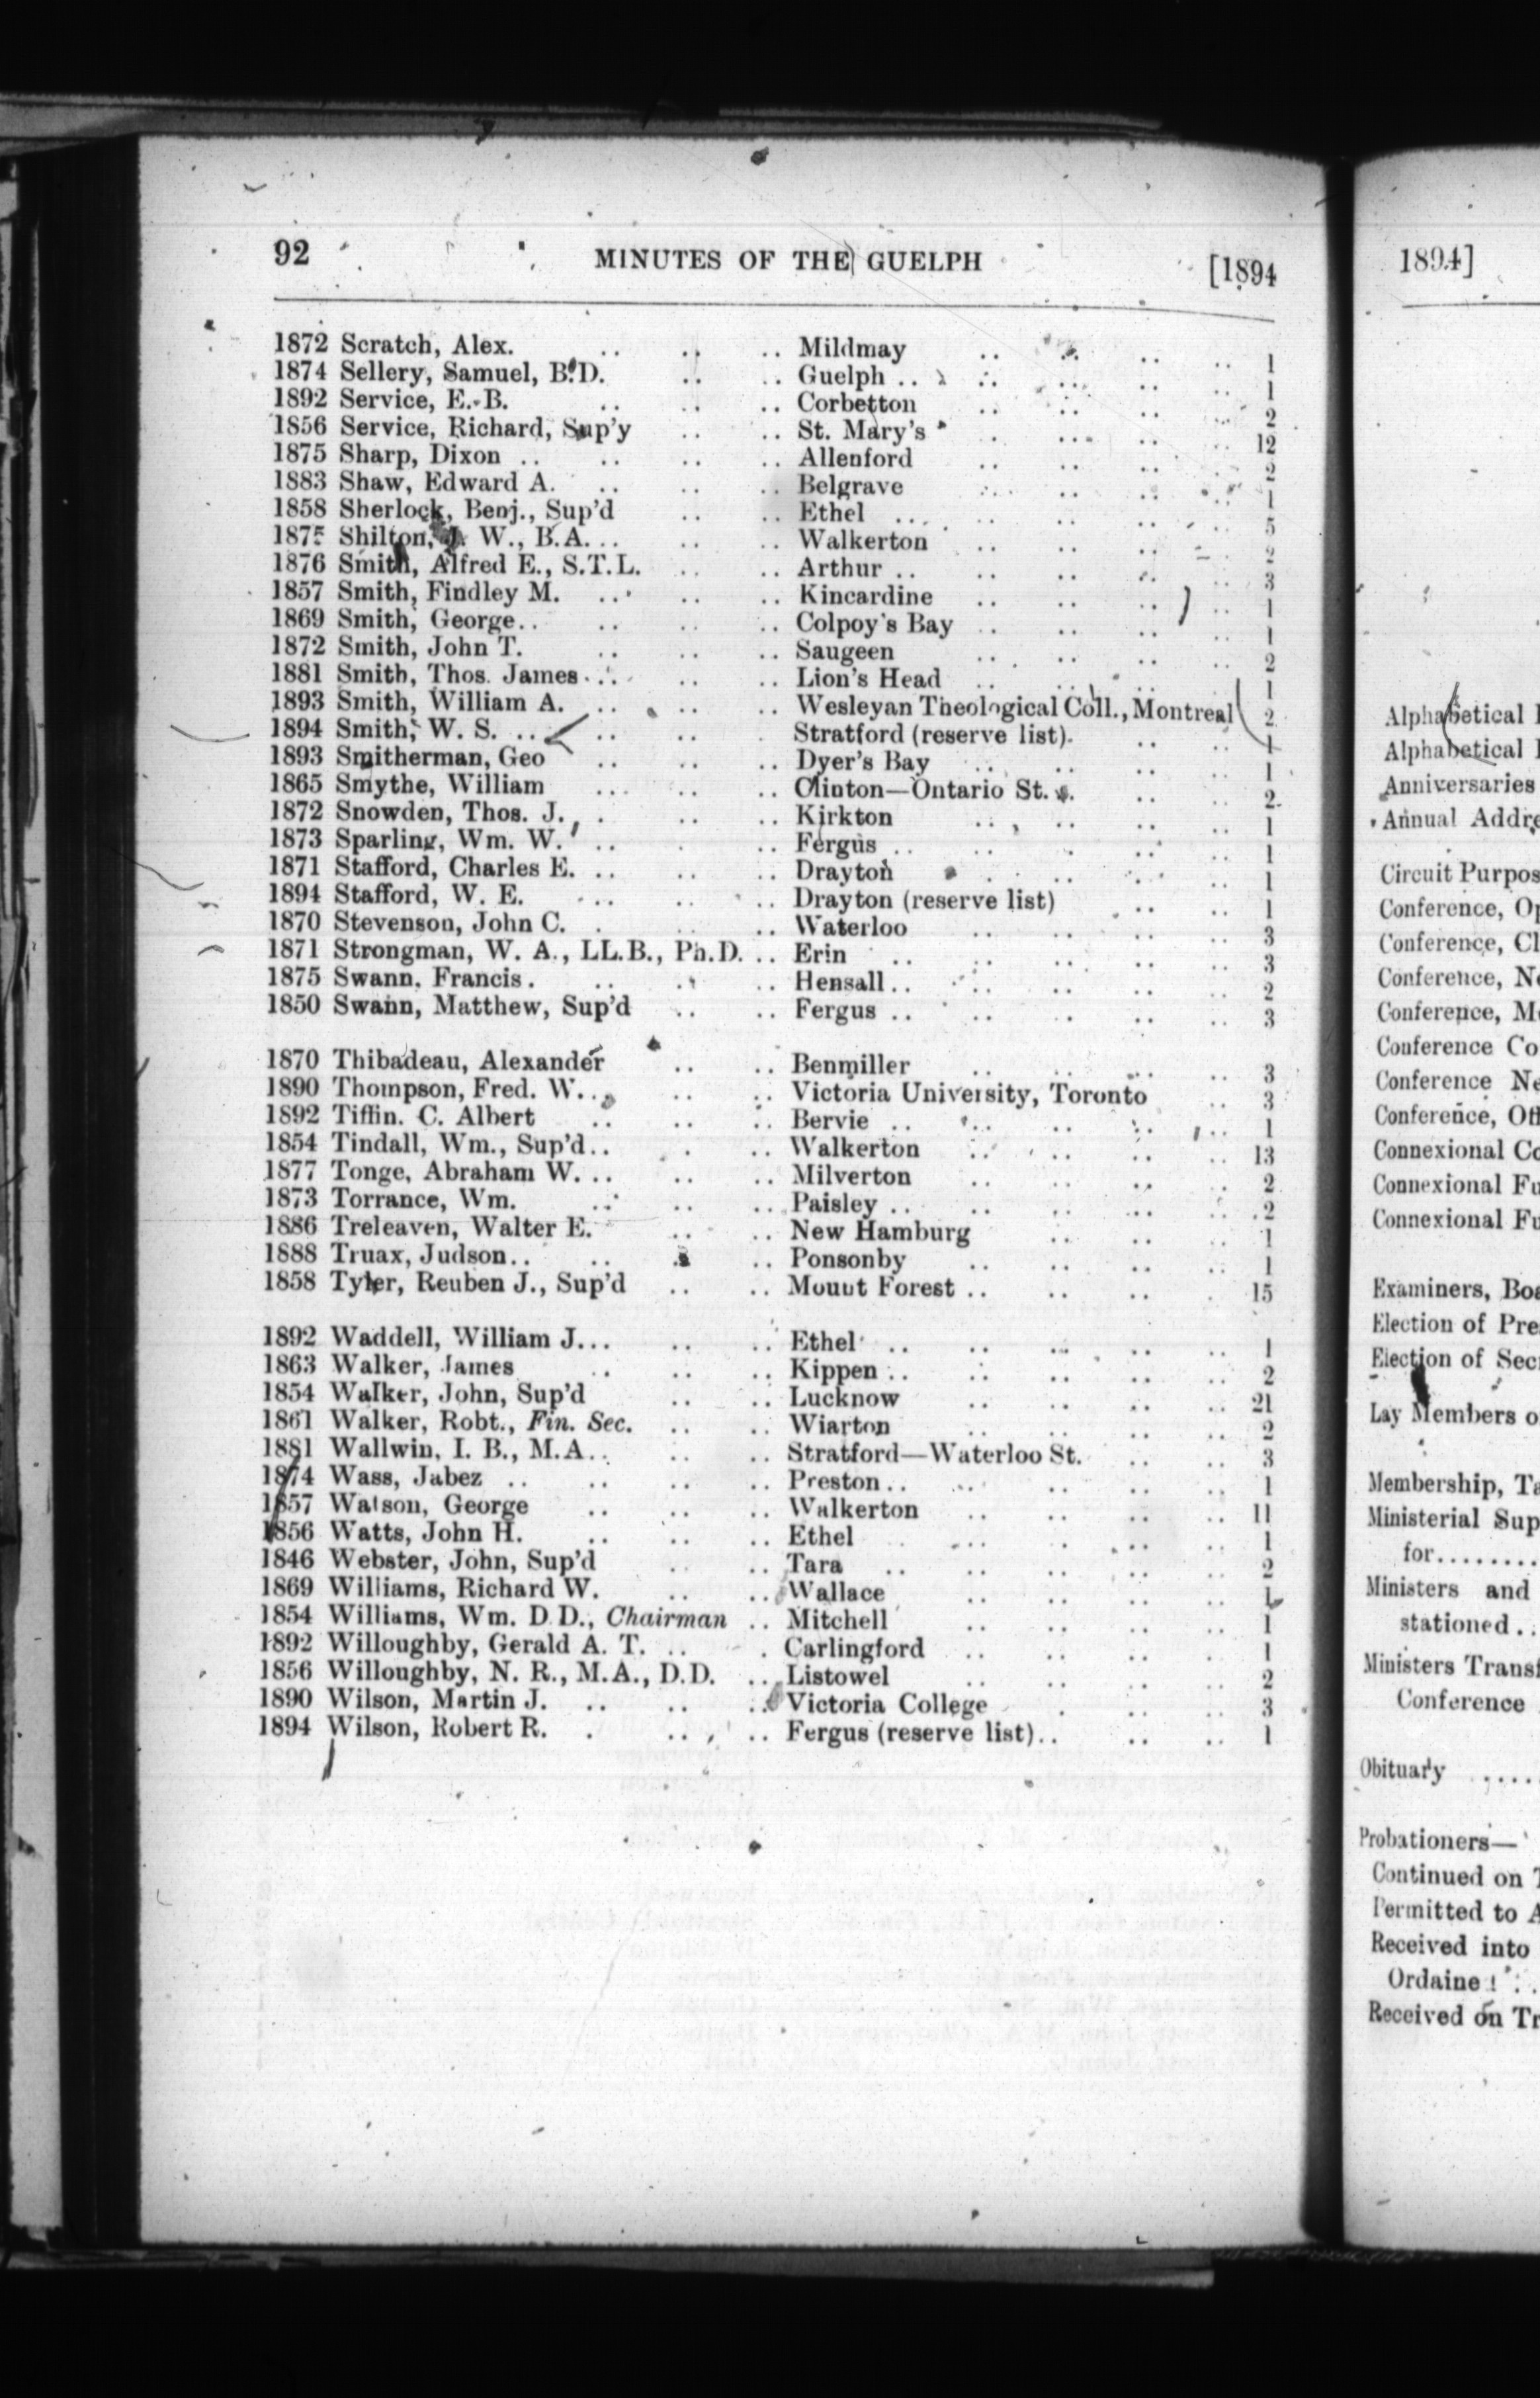 92 MINUTES OF THE GUELPH [1894
1872 Scratch, Alex. .. .. .. Mildmay .. .. .. .. 1
1874 Sellery, Samuel, B.D. .. .. Guelph .. .. .. .. .. 1
1892 Service, E. B. .. .. .. Corbetton .. .. .. .. 2
1856 Service, Richard, Sup'y .. .. St. Mary's .. .. .. .. 12
1875 Sharp, Dixon .. .. .. .. Allenford .. .. .. .. 2
1883 Shaw, Edward A. .. .. .. Belgrave .. .. .. .. 1
1858 Sherlock, Benj., Sup'd .. .. Ethel .. .. .. .. .. 5
1875 Shilton, J. W., B.A. .. .. .. Walkerton .. .. .. .. 2
1876 Smith, Alfred E., S.T.L. .. .. Arthur .. .. .. .. .. 3
1857 Smith, Findley M. .. .. .. Kincardine .. .. .. .. 1
1869 Smith, George .. .. .. .. Colpoy's Bay .. .. .. .. 1
1872 Smith, John T. .. .. .. Saugeen .. .. .. .. 2
1881 Smith, Thos. James .. .. .. Lion's Head .. .. .. .. 1
1893 Smith, William A. .. .. .. Wesleyan Theological Coll., Montreal 2
1894 Smith, W. S. .. .. .. Stratford (reserve list) .. .. 1
1893 Smitherman, Geo .. .. .. Dyer's Bay .. .. .. .. 1
1865 Smythe, William .. .. .. Clinton—Ontario St. .. .. .. 2
1872 Snowden, Thos. J. .. .. .. Kirkton .. .. .. .. 1
1873 Sparling, Wm. W. .. .. .. Fergus .. .. .. .. .. 1
1871 Stafford, Charles E. .. .. .. Drayton .. .. .. .. 1
1894 Stafford, W. E. .. .. .. Drayton (reserve list) .. .. 1
1870 Stevenson, John C. .. .. .. Waterloo .. .. .. .. 3
1871 Strongman, W. A., LL.B., Ph.D. .. Erin .. .. .. .. .. 3
1875 Swann, Francis .. .. .. .. Hensall .. .. .. .. .. 2
1850 Swann, Matthew, Sup'd .. .. Fergus .. .. .. .. .. 3
1870 Thibadeau, Alexander .. .. Benmiller .. .. .. .. 3
1890 Thompson, Fred. W. .. .. .. Victoria University, Toronto .. 3
1892 Tiffin, C. Albert .. .. .. Bervie .. .. .. .. .. 1
1854 Tindall, Wm., Sup'd .. .. .. Walkerton .. .. .. .. 13
1877 Tonge, Abraham W. .. .. .. Milverton .. .. .. .. 2
1873 Torrance, Wm. .. .. .. Paisley .. .. .. .. .. 2
1886 Treleaven, Walter E. .. .. New Hamburg .. .. .. 1
1888 Truax, Judson .. .. .. .. Ponsonby .. .. .. .. 1
1858 Tyler, Reuben J., Sup'd .. .. Mount Forest .. .. .. .. 15
1892 Waddell, William J. .. .. .. Ethel .. .. .. .. .. 1
1863 Walker, James .. .. .. Kippen .. .. .. .. .. 2
1854 Walker, John, Sup'd .. .. Lucknow .. .. .. .. 21
1861 Walker, Robt., Fin. Sec. .. .. Wiarton .. .. .. .. 2
1881 Wallwin, I. B., M.A. .. .. .. Stratford—Waterloo St. .. .. 3
1874 Wass, Jabez .. .. .. .. Preston .. .. .. .. .. 1
1857 Watson, George .. .. .. Walkerton .. .. .. .. 11
1856 Watts, John H. .. .. .. Ethel .. .. .. .. 1
1846 Webster, John, Sup'd .. .. Tara .. .. .. .. .. 2
1869 Williams, Richard W. .. .. Wallace .. .. .. .. 1
1854 Williams, Wm. D.D., Chairman .. Mitchell .. .. .. .. 1
1892 Willoughby, Gerald A. T. .. .. Carlingford .. .. .. .. 1
1856 Willoughby, N. R., M.A., D.D. .. Listowel .. .. .. .. 2
1890 Wilson, Martin J. .. .. .. Victoria College .. .. .. 3
1894 Wilson, Robert R. .. .. .. Fergus (reserve list) .. .. .. 1
1894]
Alphabetical
Alphabetical
Anniversaries
Annual
Circuit
Conference,
Conference,
Conference,
Conference,
Conference
Conference
Conference,
Connexional
Connexional
Connexional
Examiners,
Election of
Election of
Lay Members
Membership,
Ministerial
for........
Ministers and
stationed..
Ministers
Conference
Obituary ....
Probationers—
Continued on
Permitted to
Received into
Received on